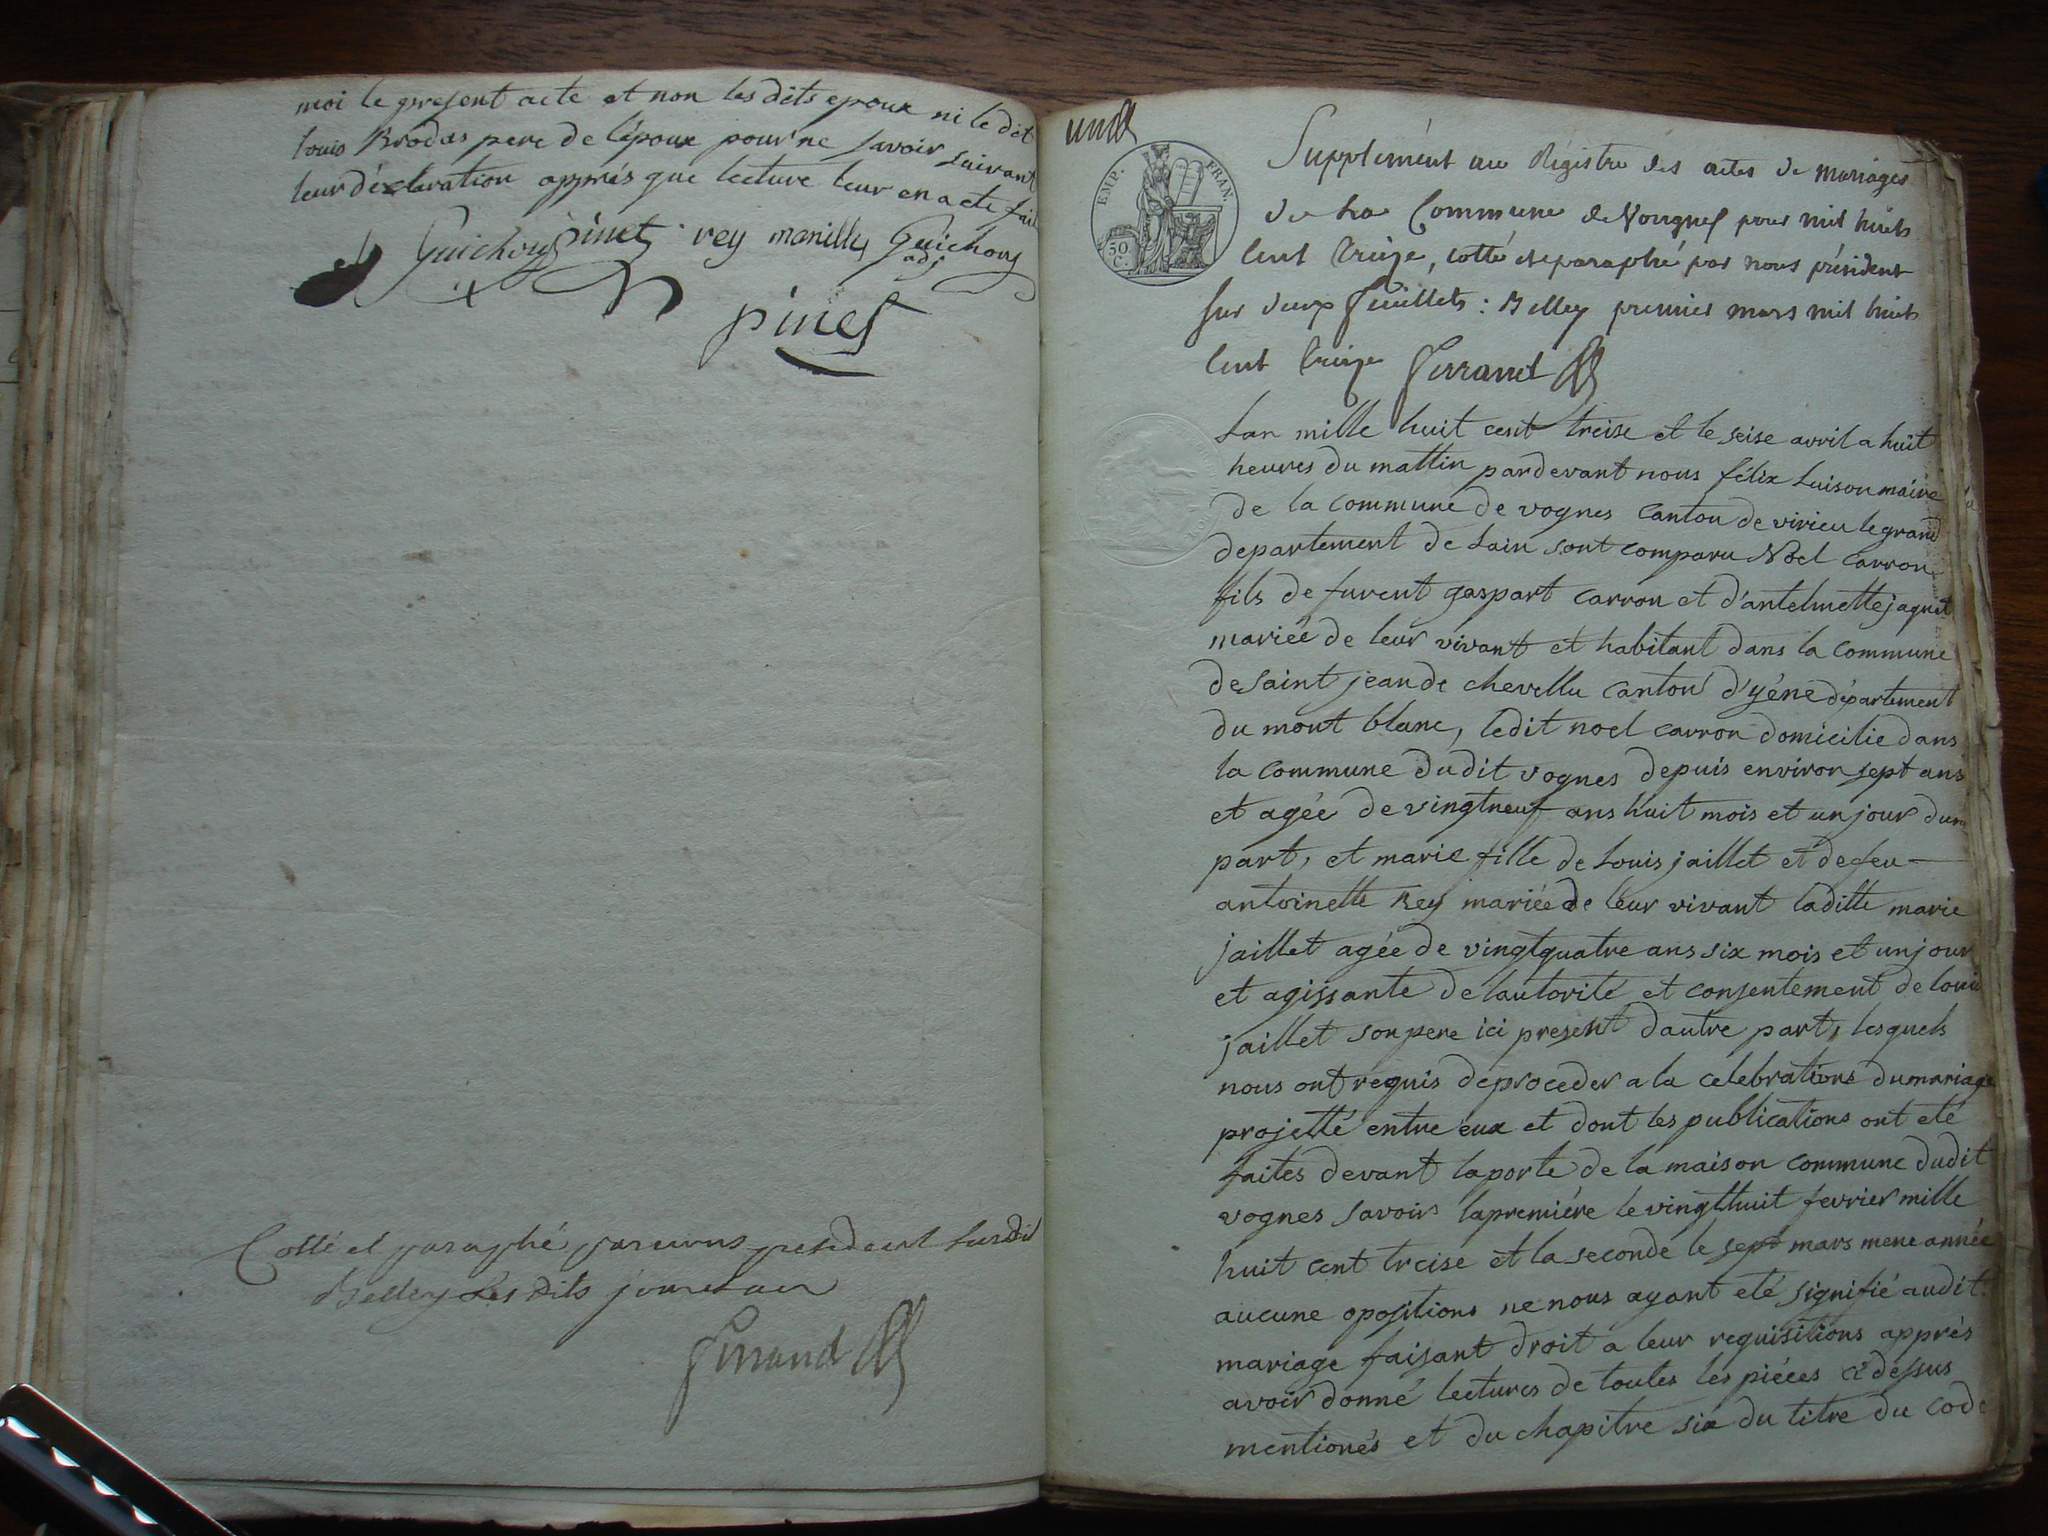 moi le present acte et non les dits epoux ni le dit
louis Brodas pere de lépoux pour ne savoir suivant
leur déclaration apprés que lecture leur en a eté fait
Guichon pinet rey manilly Guichon
adj
pinet
Cotté et paraphé par nous president susdit
Belley les dits jour et an
Ferrand
un
EMP. FRAN.
50
C.
Supplément au Régistre des actes de mariages
de la Commune de Vongnes pour mil huit
cent treize, cotté et paraphé par nous président
sur deux feuillets : Belley premier mars mil huit
cent treize Ferrand
Lan mille huit cent treise et le seise avril a huit
heures du mattin pardevant nous félix Luison maire
de la commune de vognes canton de virieu le grand
departement de Lain sont comparu Noel carron
fils de furent gaspart carron et d'antelmette jaquet
mariée de leur vivant et habitant dans la commune
de saint jean de chevellu canton d'yéne département
du mont blanc, ledit noel carron domicilie dans
la commune dudit vognes depuis environ sept ans
et agée de vingtneuf ans huit mois et un jour dune
part, et marie fille de Louis jaillet et de feu
antoinette Rey mariée de leur vivant laditte marie
jaillet agée de vingtquatre ans six mois et un jour
et agissante de lautorité et consentement de louis
jaillet son pere ici present dautre part, lesquels
nous ont requis de proceder a la celebrations du mariage
projetté entre eux et dont les publications ont eté
faites devant la porte de la maison commune dudit
vognes savoir la premiére le vingthuit fevrier mille
huit cent treise et la seconde le sept mars meme année
aucune opositions ne nous ayant eté signifié audit
mariage faisant droit a leur requisitions apprés
avoir donné lectures de toutes les piéces ci dessus
mentionés et du chapitre six du titre du code